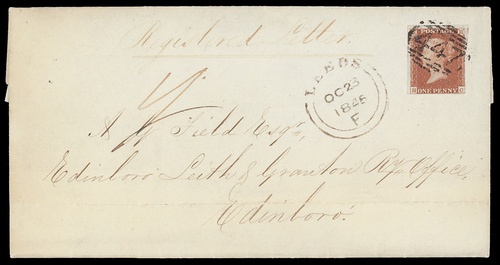 Registered Letter.
LEEDS
OC 23
1848
F
ONE PENNY
Field Esqr.,
Edinboro Leith & Granton Ry Office,
Edinboro.